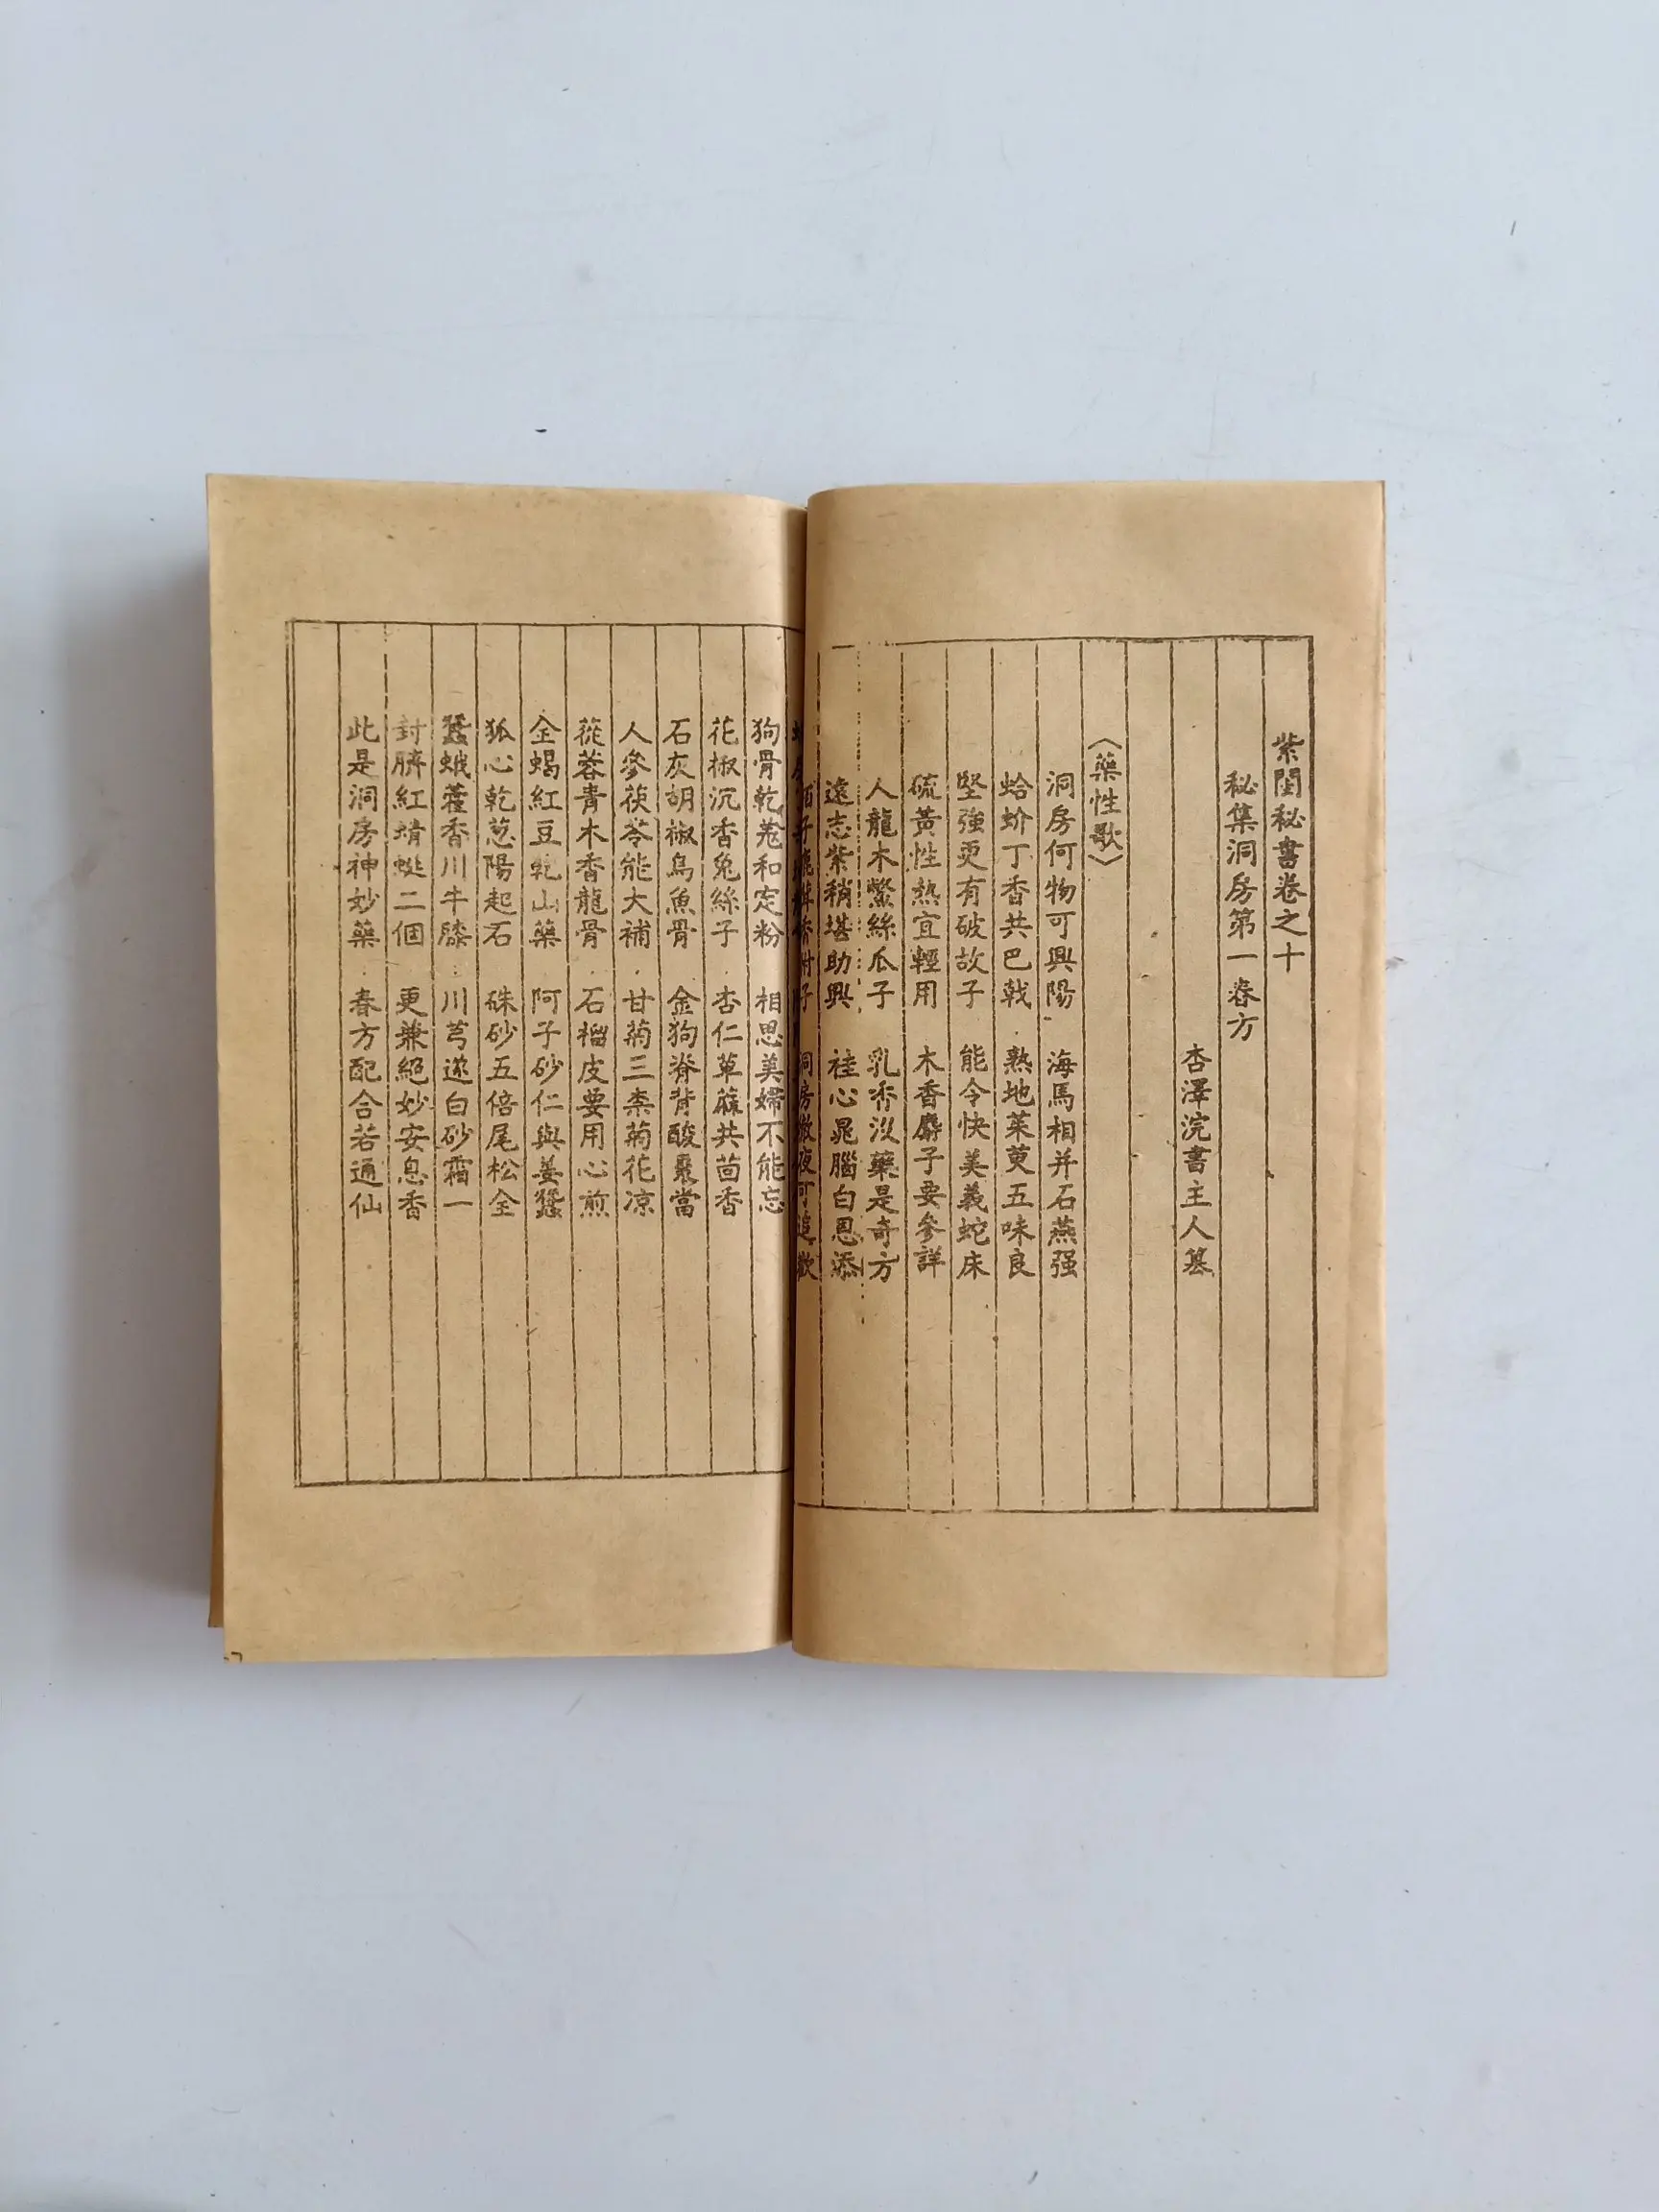 紫閨秘書卷之十
秘集洞房第一春方
杏澤浣書主人纂
〈藥性歌〉
洞房何物可興陽 海馬相并石燕强
蛤蚧丁香共巴戟 熟地茱萸五味良
堅強更有破故子 能令快美義蛇床
硫黃性热宜輕用 木香麝子要參詳
人龍木鱉絲瓜子 乳香汊藥是奇方
遠志紫稍堪助興 桂心晁腦白恩添
洞房徹夜可追歡
狗骨乾 和定粉 相思美婦不能忘
花椒沉香兔絲子 杏仁草蔴共茴香
石灰胡椒烏魚骨 金狗脊背酸棗當
人參茯苓能大補 甘菊三柰菊花凉
蓯蓉青木香龍骨 石榴皮要用心煎
全蝎紅豆乾山藥 阿子砂仁與姜蠶
狐心乾葱陽起石 硃砂五倍尾松全
蠶蛾藿香川牛膝 川芎遂白砂霜一
封臍紅蜻蜓二個 更兼絕妙安息香
此是洞房神妙藥 春方配合若通仙